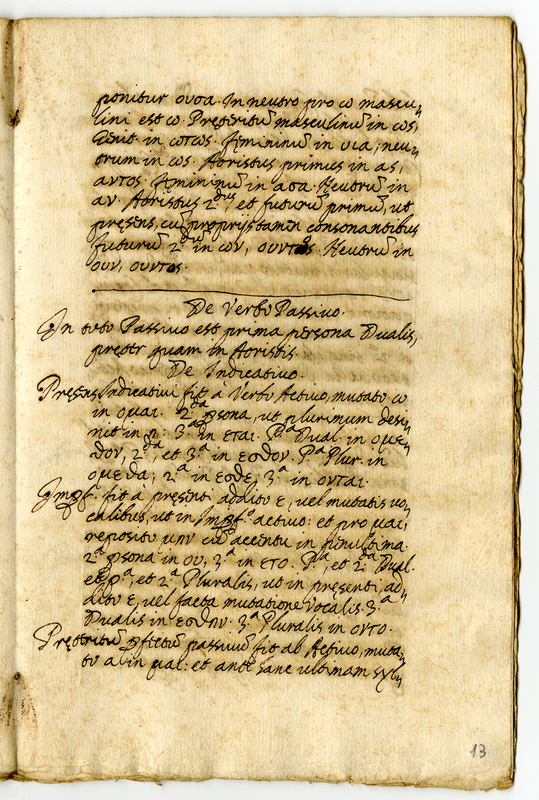 ponitur ουσα. In neutro pro ω mascu„
lini est ω. Pręteritũ masculinũ in ως,
Genit. in ωτως. Fęmininũ in υια, neu„
trum in ως. Aoristus primus in ας,
αντος. Fęmininũ in ασα. Neutrũ in
αν. Aoristus 2.dus, et futurũ primũ, ut
pręsens, cũ proprijs tamen consonantibus
futurũ 2.dũ in ων, ουντος. Neutrũ in
ουν, ουντος.
De Verbo Passivo.
In toto Passivo est prima persona Dualis,
pręter quam in Aoristis.
De Indicativo.
Pręsens Indicativi fit à Verbo Activo, mutato ω
in ομαι. 2.da ꝑsona, ut plurimum desi„
nit in η: 3.a in εται. P.a Dual. in ομε„
θον, 2.da et 3.a in εσθον. P.a Plur. in
ομεθα, 2.a in εσθε, 3.a in ονται.
Impf. fit a pręsenti addito ε, vel mutatis vo„
calibus, ut in Impf.o activo: et pro μαι,
reposito μην cũ accentu in penultima
2.a ꝑsona in ου, 3.a in ετο. P.a, et 2.da Dual.
et p.a, et 2.a Pluralis, ut in pręsenti, ad„
dito ε, vel facta mutatione vocalis. 3.a
Dualis in εσθην. 3.a Pluralis in οντο.
Pręteritũ ꝑfectũ passivũ fit ab Activo, muta„
to α in μαι: et ante hanc ultimam syl„
13